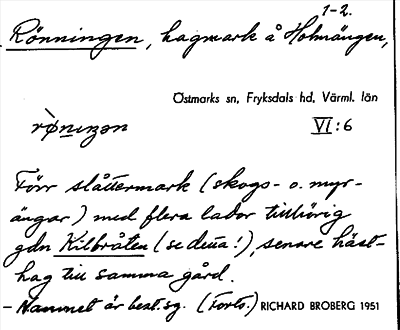 1-2.
Rönningen, hagmark å Holmängen,
Östmarks sn, Fryksdals hd, Värml. län
rø̀nıŋən VI:6
Förr slåttermark (skogs- o. myr-
ängar) med flera lador tillhörig
gdn Kilbråten (se detta!), senare häst-
hag till samma gård.
– Namnet är best. sg. (Forts.) RICHARD BROBERG 1951